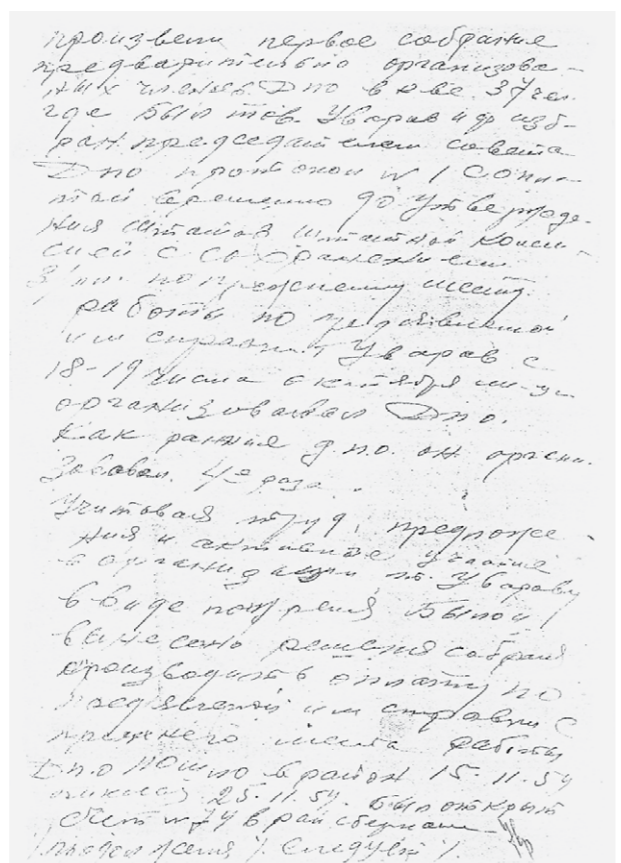 произвели первое собрание
предварительно организова-
ных членов Дпо в к-ве 37 чел.
где был тов. Уваров и ф изб-
ран председателем совета
Дпо протокол № 1 С опла-
той временно до утвержде-
ния штатов штатной комис-
сией с сохранением
з/пл. по прежнему месту
работы по предъявленной
им справки Уваров с
18-19 числа октября м-ца
организовывал Дпо.
Как ранние д.п.о. он органи-
зовавал 4е раза.
Учитовая труд, предложе-
ния и активное участие
в организации т. Уварову
в виде поощрения было
вынесено решения собрания
производить оплату по
предъявленой им справки с
прежнего места работы
Дпо пошло в район 15.11.54
25.11.54. был открыт
счет № 74 в райсберкассе
/ продолжения / следует /